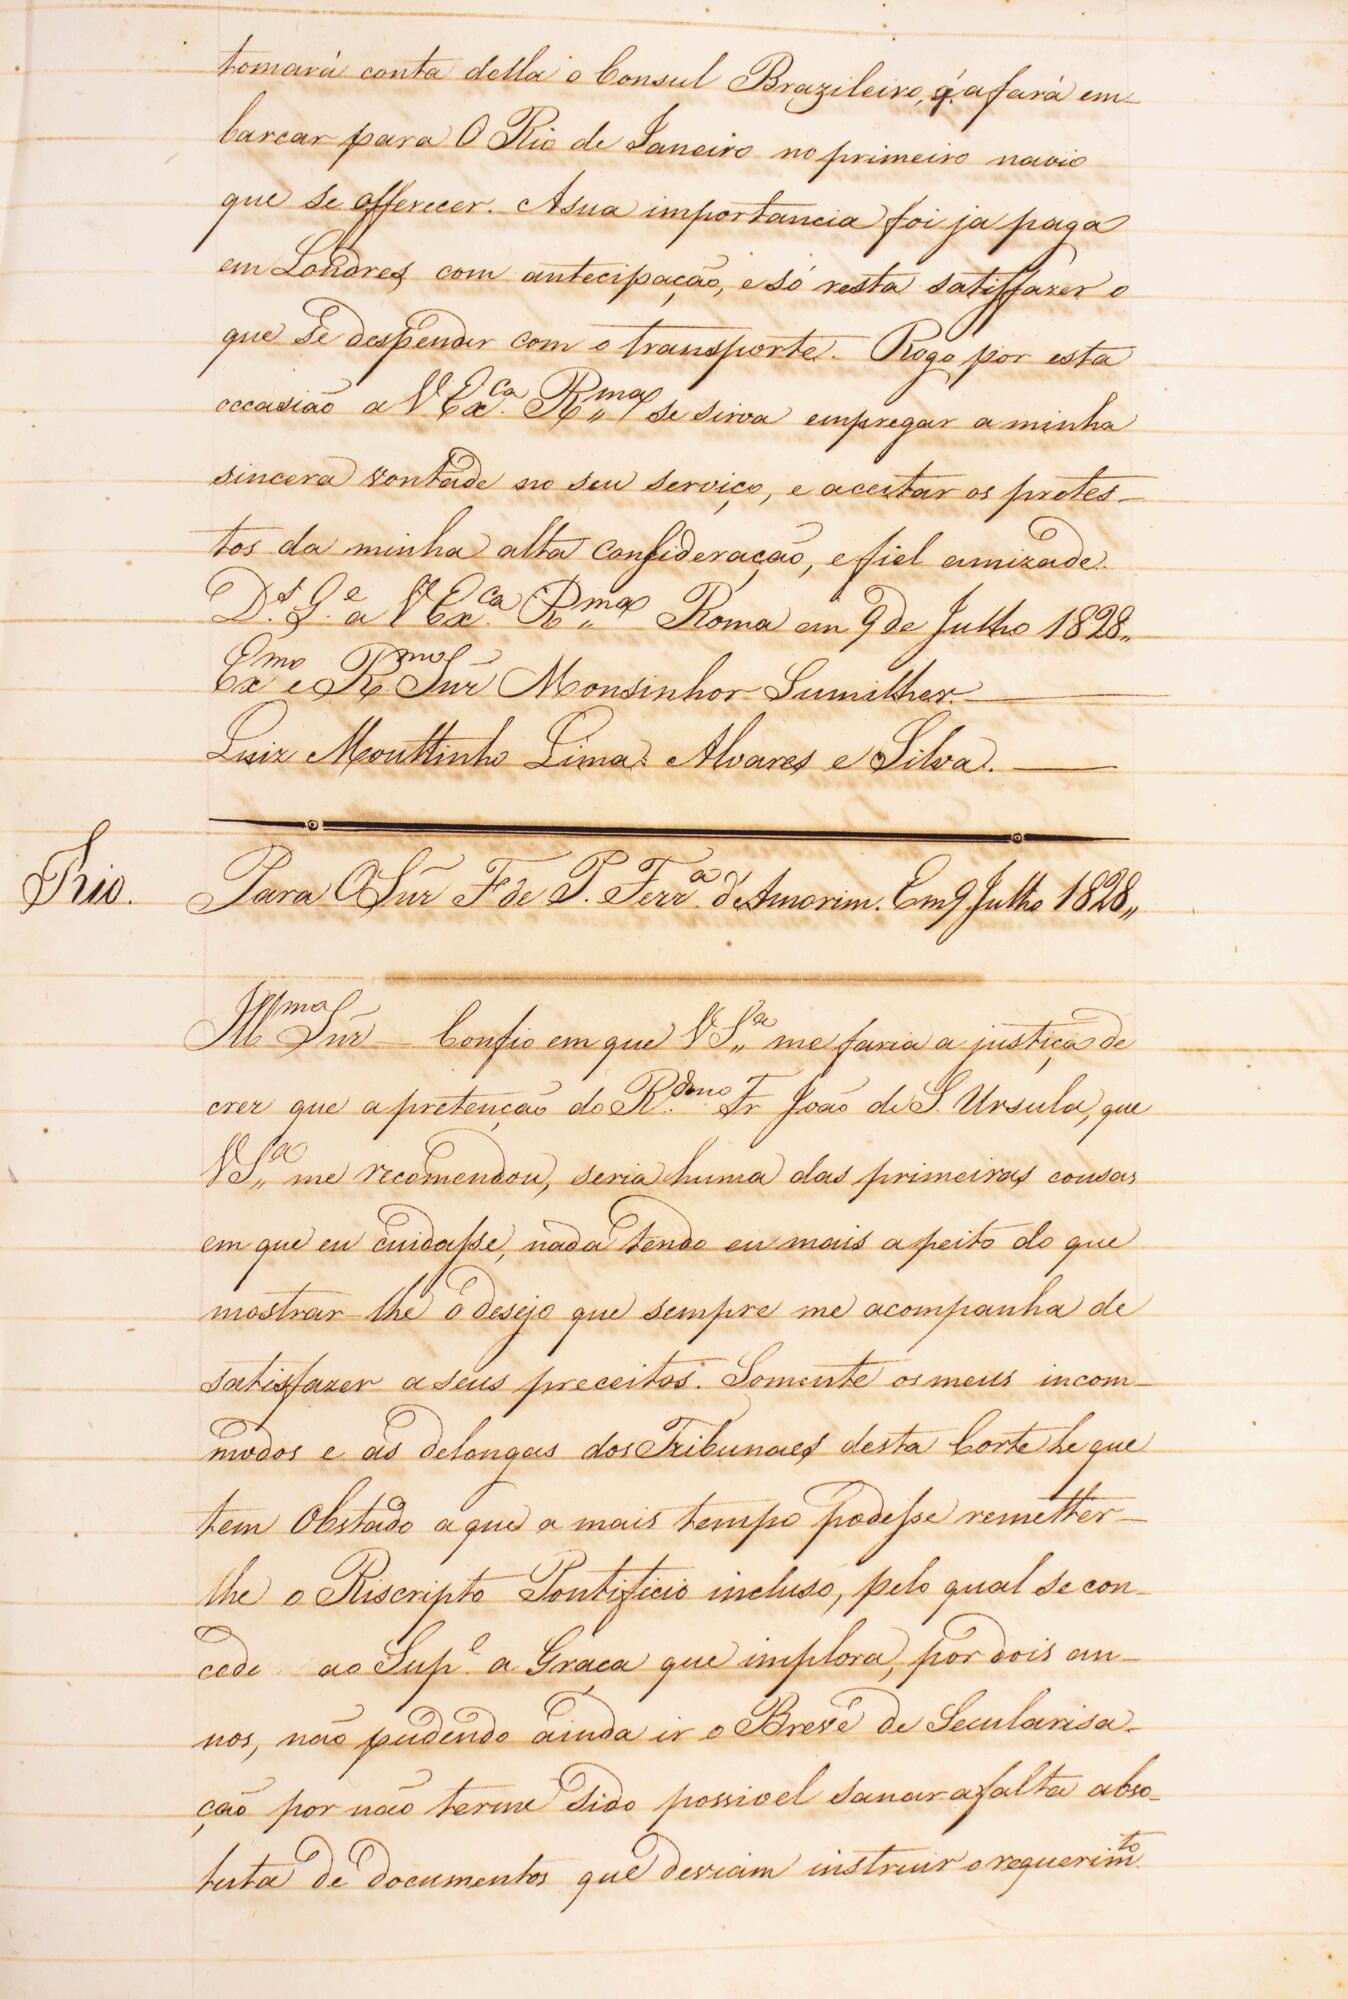 tomará conta della o Consul Brazileiro, q̃ a fará em-
barcar para O Rio de Janeiro no primeiro navio
que se offerecer. A sua importancia foi ja paga
em Londres com antecipação, e só resta satisfazer o
que se despender com o transporte. Rogo por esta
occasião a V Exca. Rma se sirva empregar a minha
sincera vontade no seu serviço, e aceitar os protes-
tos da minha alta consideração, e fiel amizade.
Ds. Ge. a V Exca. Rma Roma em 9 de Julho 1828,,
Exmo e Rmo Sñr Monsinhor Sumilher.
Luiz Mouttinho Lima Alvares e Silva.
Rio. Para O Sñr F de P. Ferra. d'Amorim. Em 9 Julho 1828,,
Illmo Sñr - Confio em que V Sa,, me faria a justiça de
crer que a pretenção do Rdmo. Fr João de S. Ursula, que
V Sa,, me recomendou, seria huma das primeiras cousas
em que eu cuidasse, nada tendo eu mais a peito do que
mostrar-lhe o desejo que sempre me acompanha de
satisfazer a seus preceitos. Somente os meus incom-
modos e as delongas dos Tribunaes desta Corte he que
tem Obstado a que a mais tempo podesse remetter-
lhe o Riscripto Pontificio incluso, pelo qual se con-
cede ao Supe. a Graça que implora, por dois an-
nos, não pudendo ainda ir o Breve de Secularisa-
ção por não terme sido possivel sanar a falta abso-
luta de documentos que deviam instruir o requerimto.